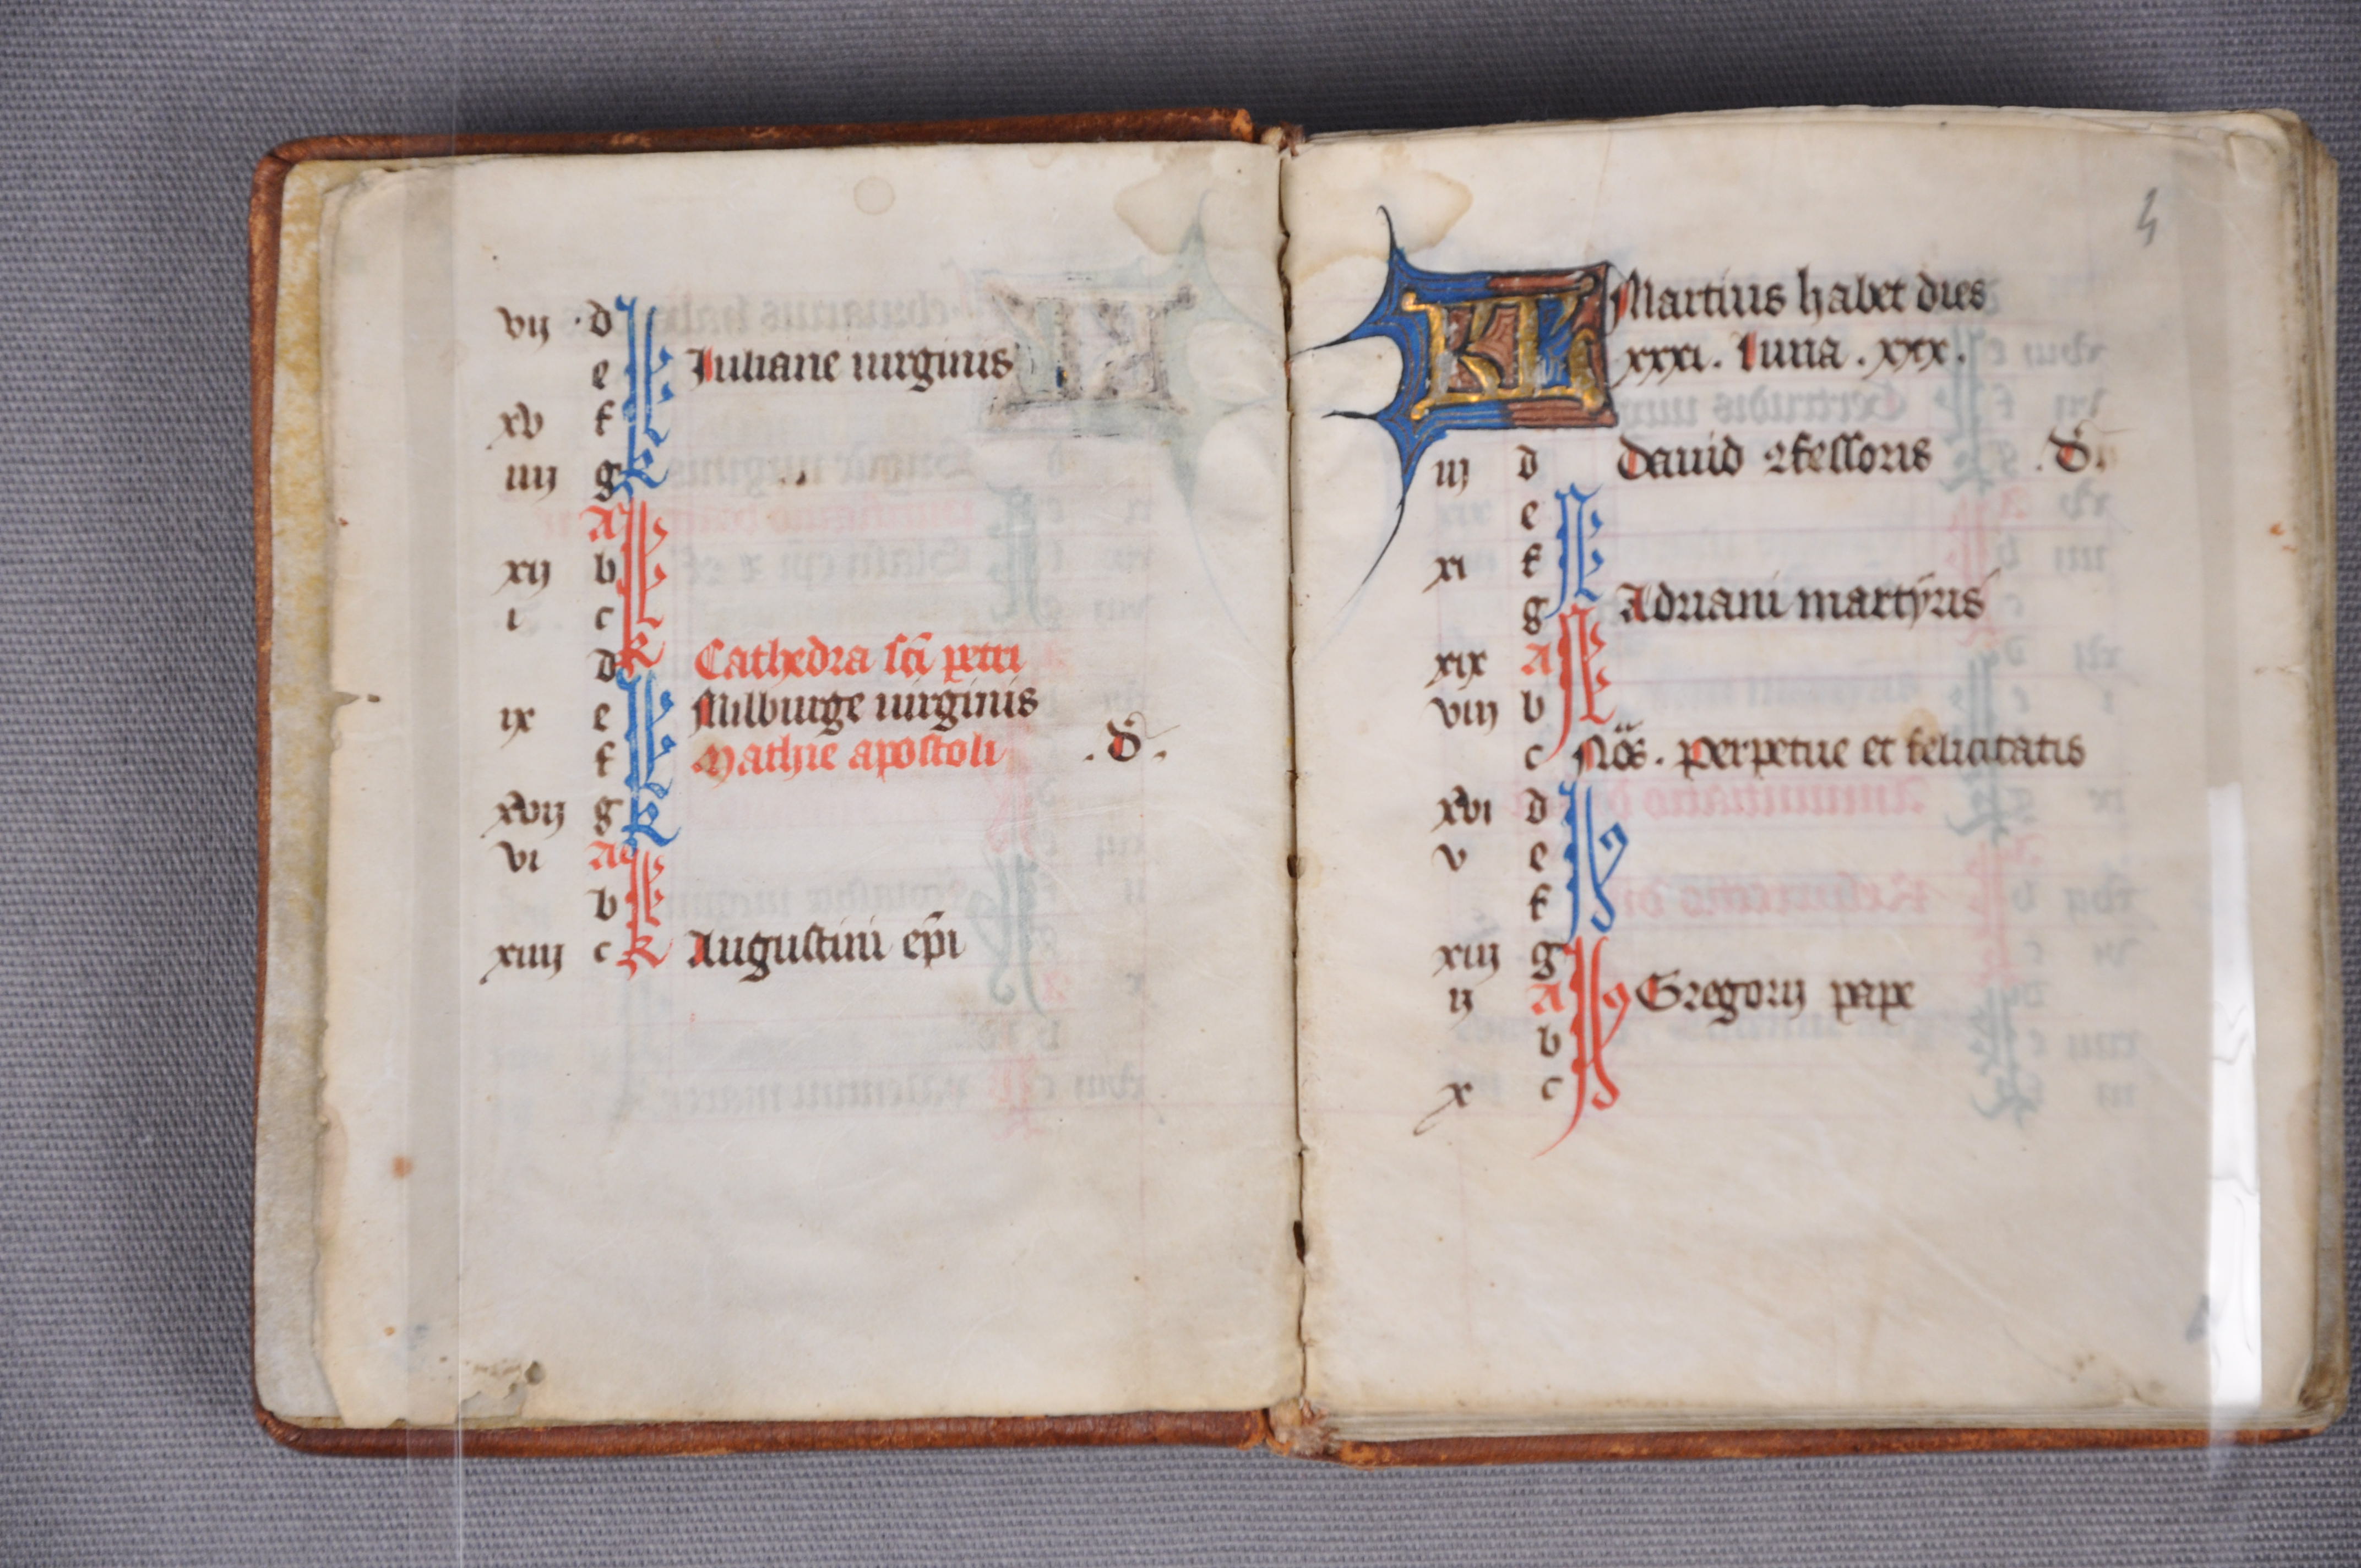 vij d
e Iuliane uirginis
xv f
iiij g
A
xij b
i c
d Cathedra sci petri
ix e Milburge uirginis
f Mathie apostoli .d.
xvij g
vi A
b
xiiij c Augustini epi
4
KL Martius habet dies
xxxi. luna . xxx.
iij d Dauid ꝯfessoris .d.
e
xi f
g Adriani martyris
xix A
viij b
c Nos. Perpetue et felicitatis
xvi d
v e
f
xiij g
ij A Gregorij pape
b
x c